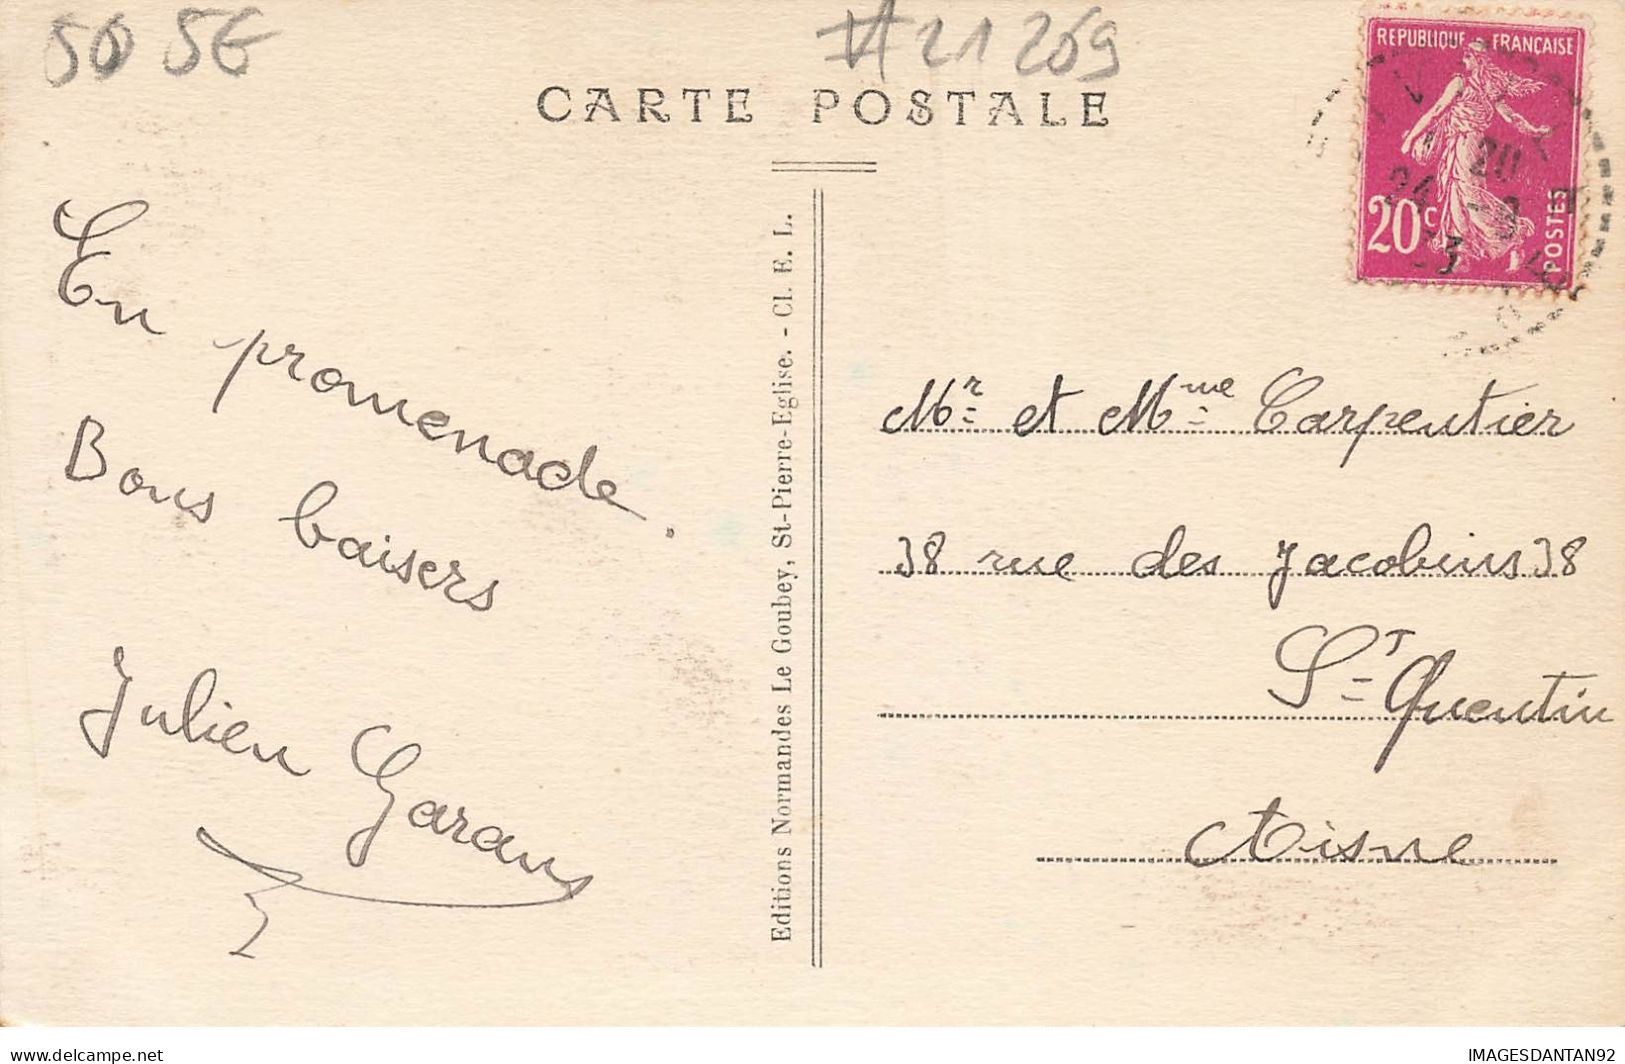 50 5G
#21269
CARTE POSTALE
REPUBLIQUE FRANÇAISE
20c
POSTES
20
24 - 9
33
En promenade.
Bons baisers
Julien Garans
Editions Normandes Le Goubey, St-Pierre-Eglise. - Cl. E. L.
Mr et Mme Carpentier
38 rue des Jacobins 38
St Quentin
Aisne
www.delcampe.net
IMAGESDANTAN92